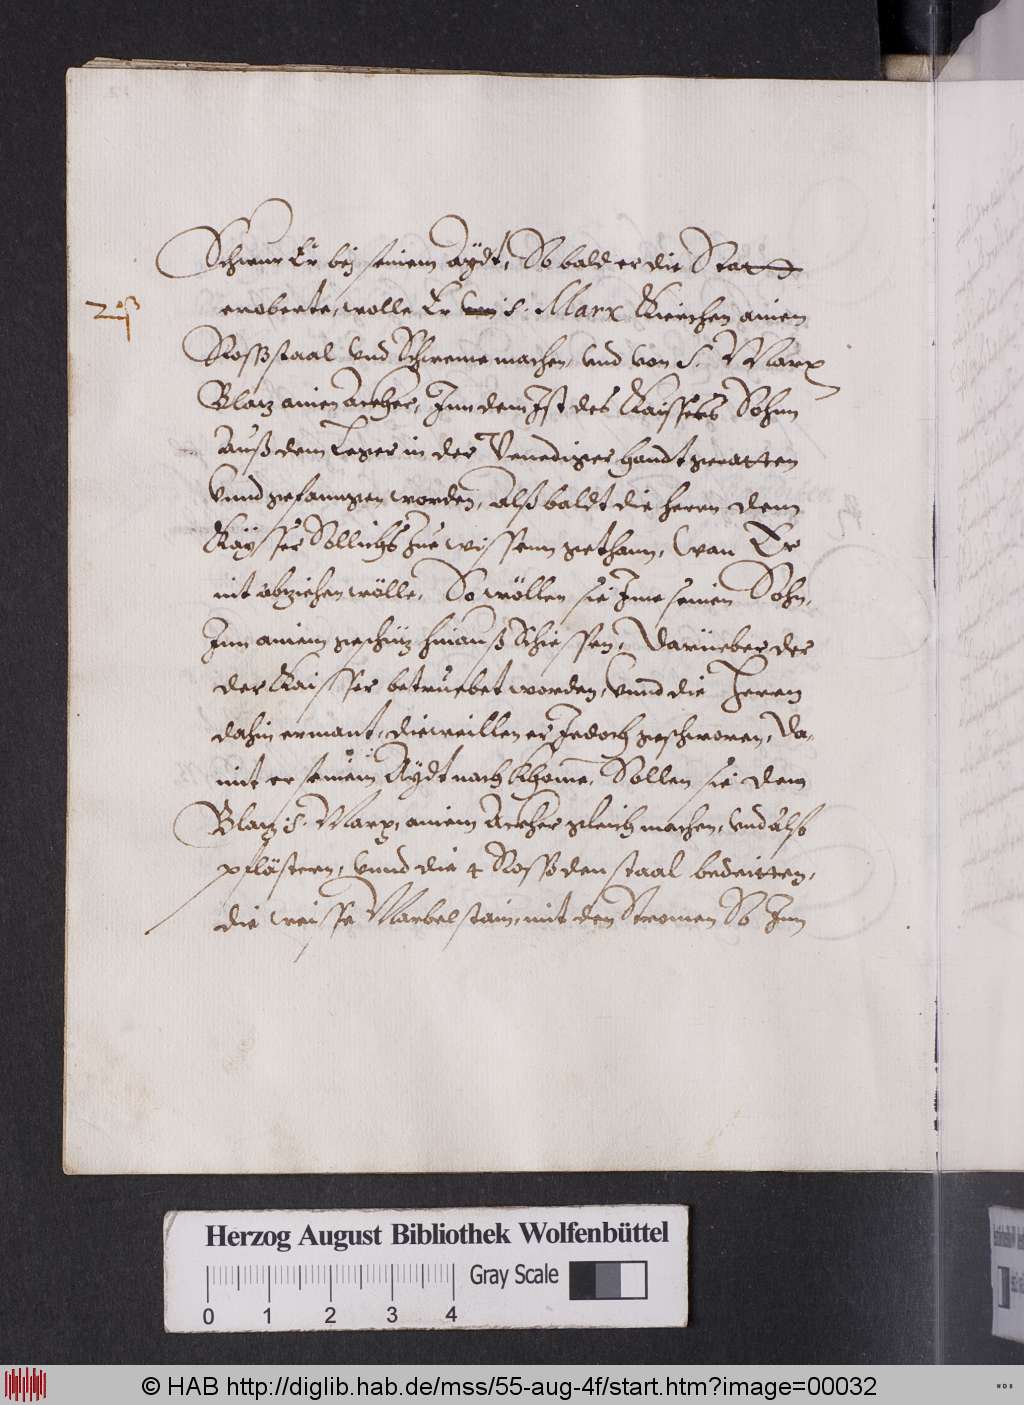 Schwur Er bej seinem Aÿdt, So bald er die Statt
eroberte, wolle Er von S. Marx Kirchen ainen
Zuß
Rosßstaal vnd Schweme machen, vnd von S. Marx
Blatz ainen ackher, Inn dem Ist des Kaissers Sohnn
Auß dem Leger in der Venediger handt geratten
Vnnd gefanngen worden, alß baldt die herrn dem
Kaÿsser Sollichs zue wissenn gethann, Wan Er
nit abziehen wölle, So wöllen sie Jme seinen Sohn,
Jnn ainem geschütz hinauß Schiessen, Darüeber der
der Kaisser betruebet worden, Vnnd die Herrn
dahin ermant, dieweillen er Jedoch geschworen, Da-
mit er seinem Aÿdt nach khome, Sollen sie dem
Blatz S. Marx, ainem Ackher gleich machen, vnd alß
pflästern, Vnnd die 4 Rosß den staal bedeitten,
die weisse Marbelstain, mit den Stromen So Jnn
Herzog August Bibliothek Wolfenbüttel
Gray Scale
0 1 2 3 4
© HAB http://diglib.hab.de/mss/55-aug-4f/start.htm?image=00032